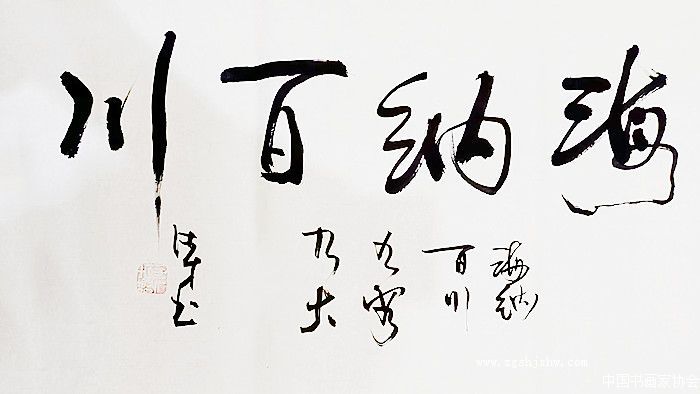 海纳百川
海纳
百川
有容
乃大
书
www.zgshjxhw.com
中国书画家协会